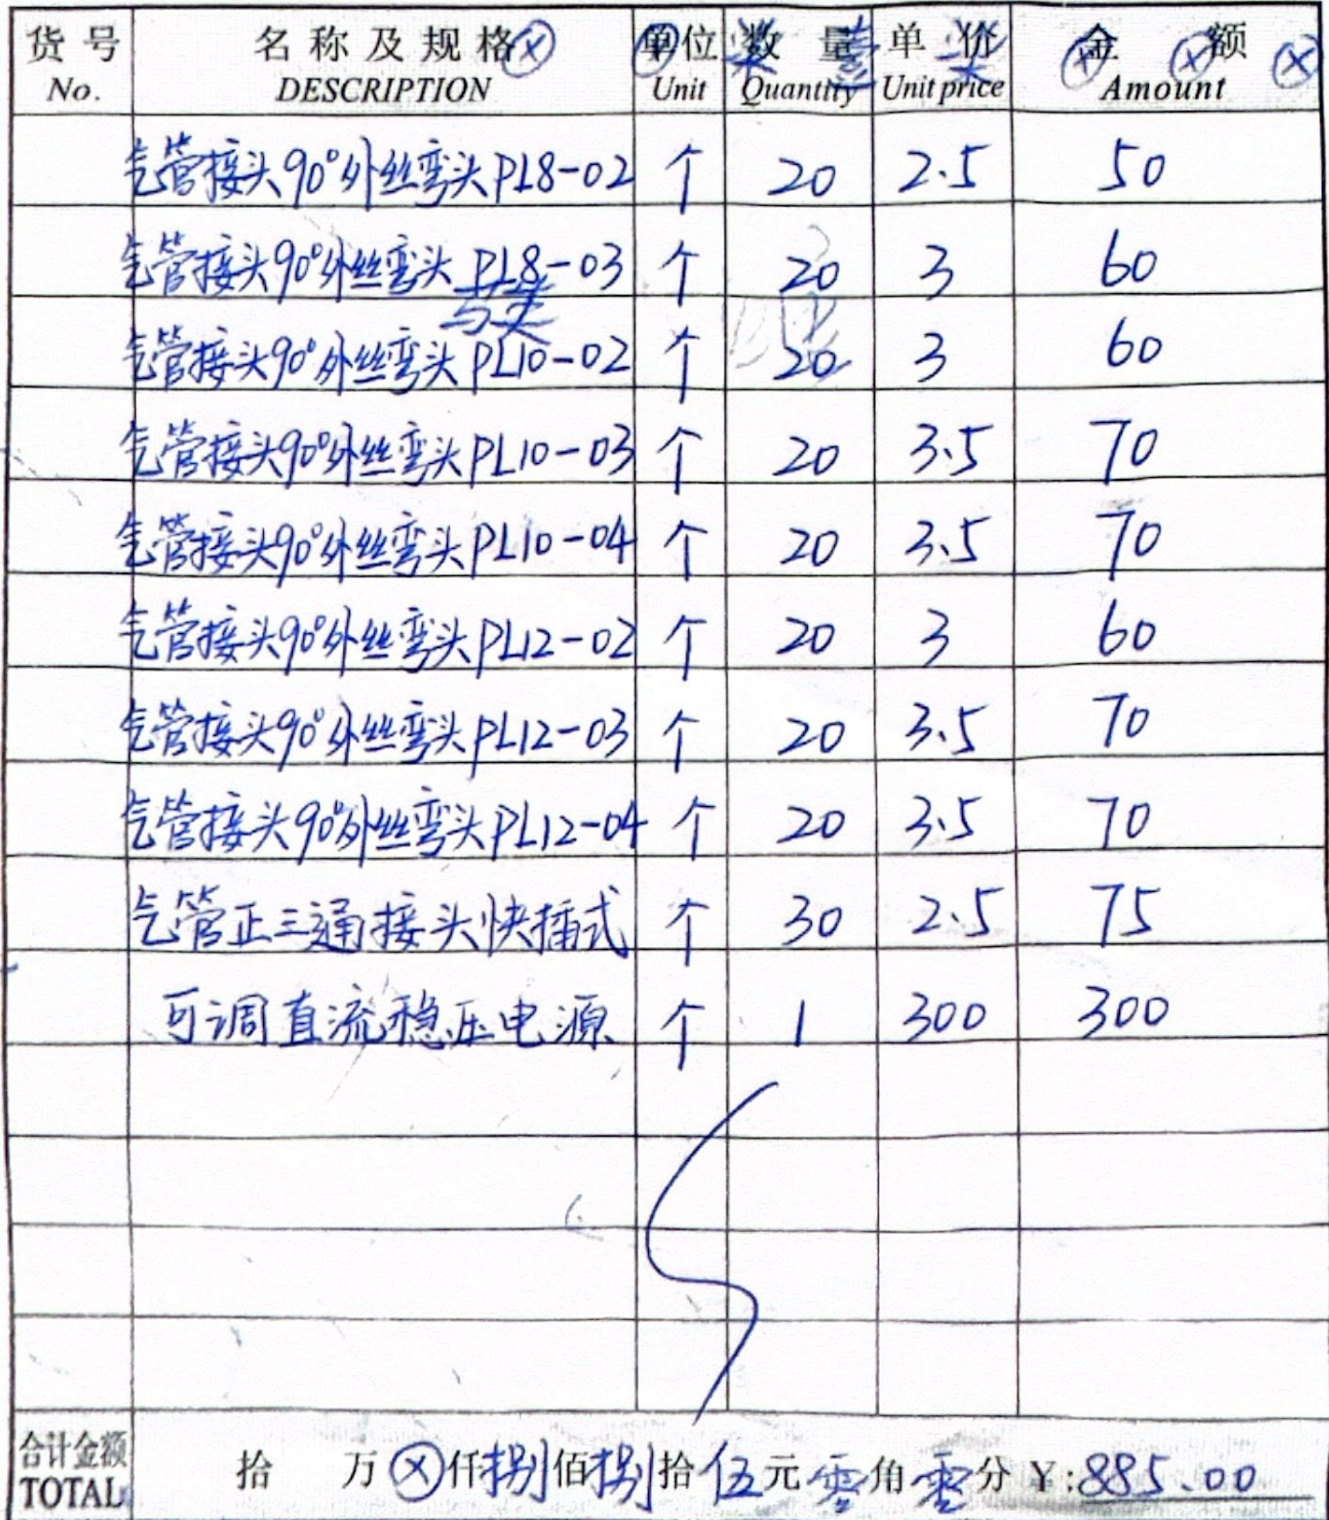 货号 名称及规格 ⊗ 单位 数量 单价 金额
No. DESCRIPTION Unit Quantity Unit price Amount
气管接头90°外丝弯头PL8-02 个 20 2.5 50
气管接头90°外丝弯头PL8-03 个 20 3 60
气管接头90°外丝弯头PL10-02 个 20 3 60
气管接头90°外丝弯头PL10-03 个 20 3.5 70
气管接头90°外丝弯头PL10-04 个 20 3.5 70
气管接头90°外丝弯头PL12-02 个 20 3 60
气管接头90°外丝弯头PL12-03 个 20 3.5 70
气管接头90°外丝弯头PL12-04 个 20 3.5 70
气管正三通接头快插式 个 30 2.5 75
可调直流稳压电源 个 1 300 300
合计金额 拾 万 ⊗ 仟 捌 佰 捌 拾 伍 元 零 角 零 分 ¥:885.00
TOTAL